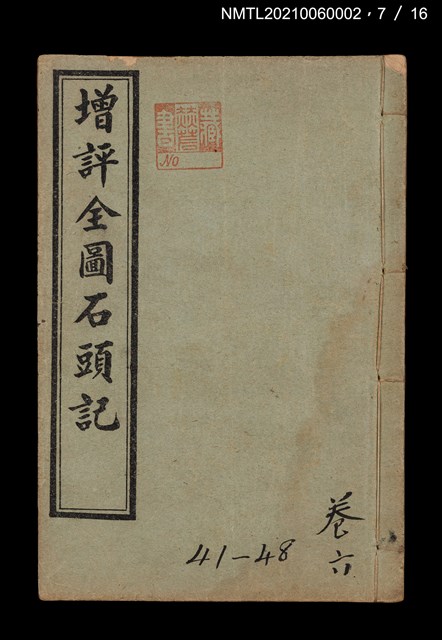 NMTL20210060002，7 / 16
增評全圖石頭記
No
卷六
41-48